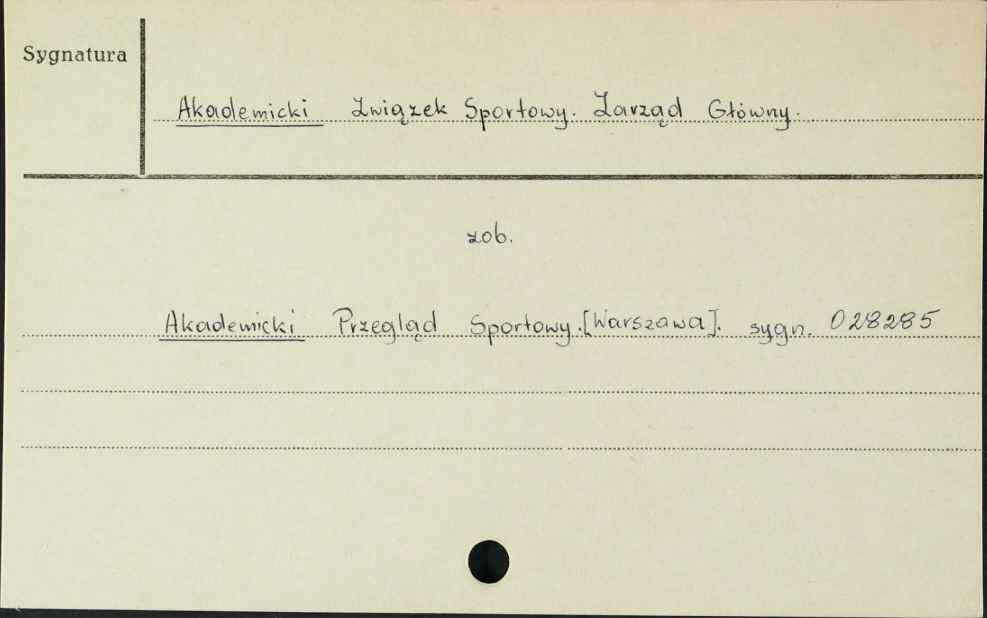 Sygnatura
Akademicki Związek Sportowy. Zarząd Główny.
zob.
Akademicki Przegląd Sportowy.[Warszawa]. sygn. 028285